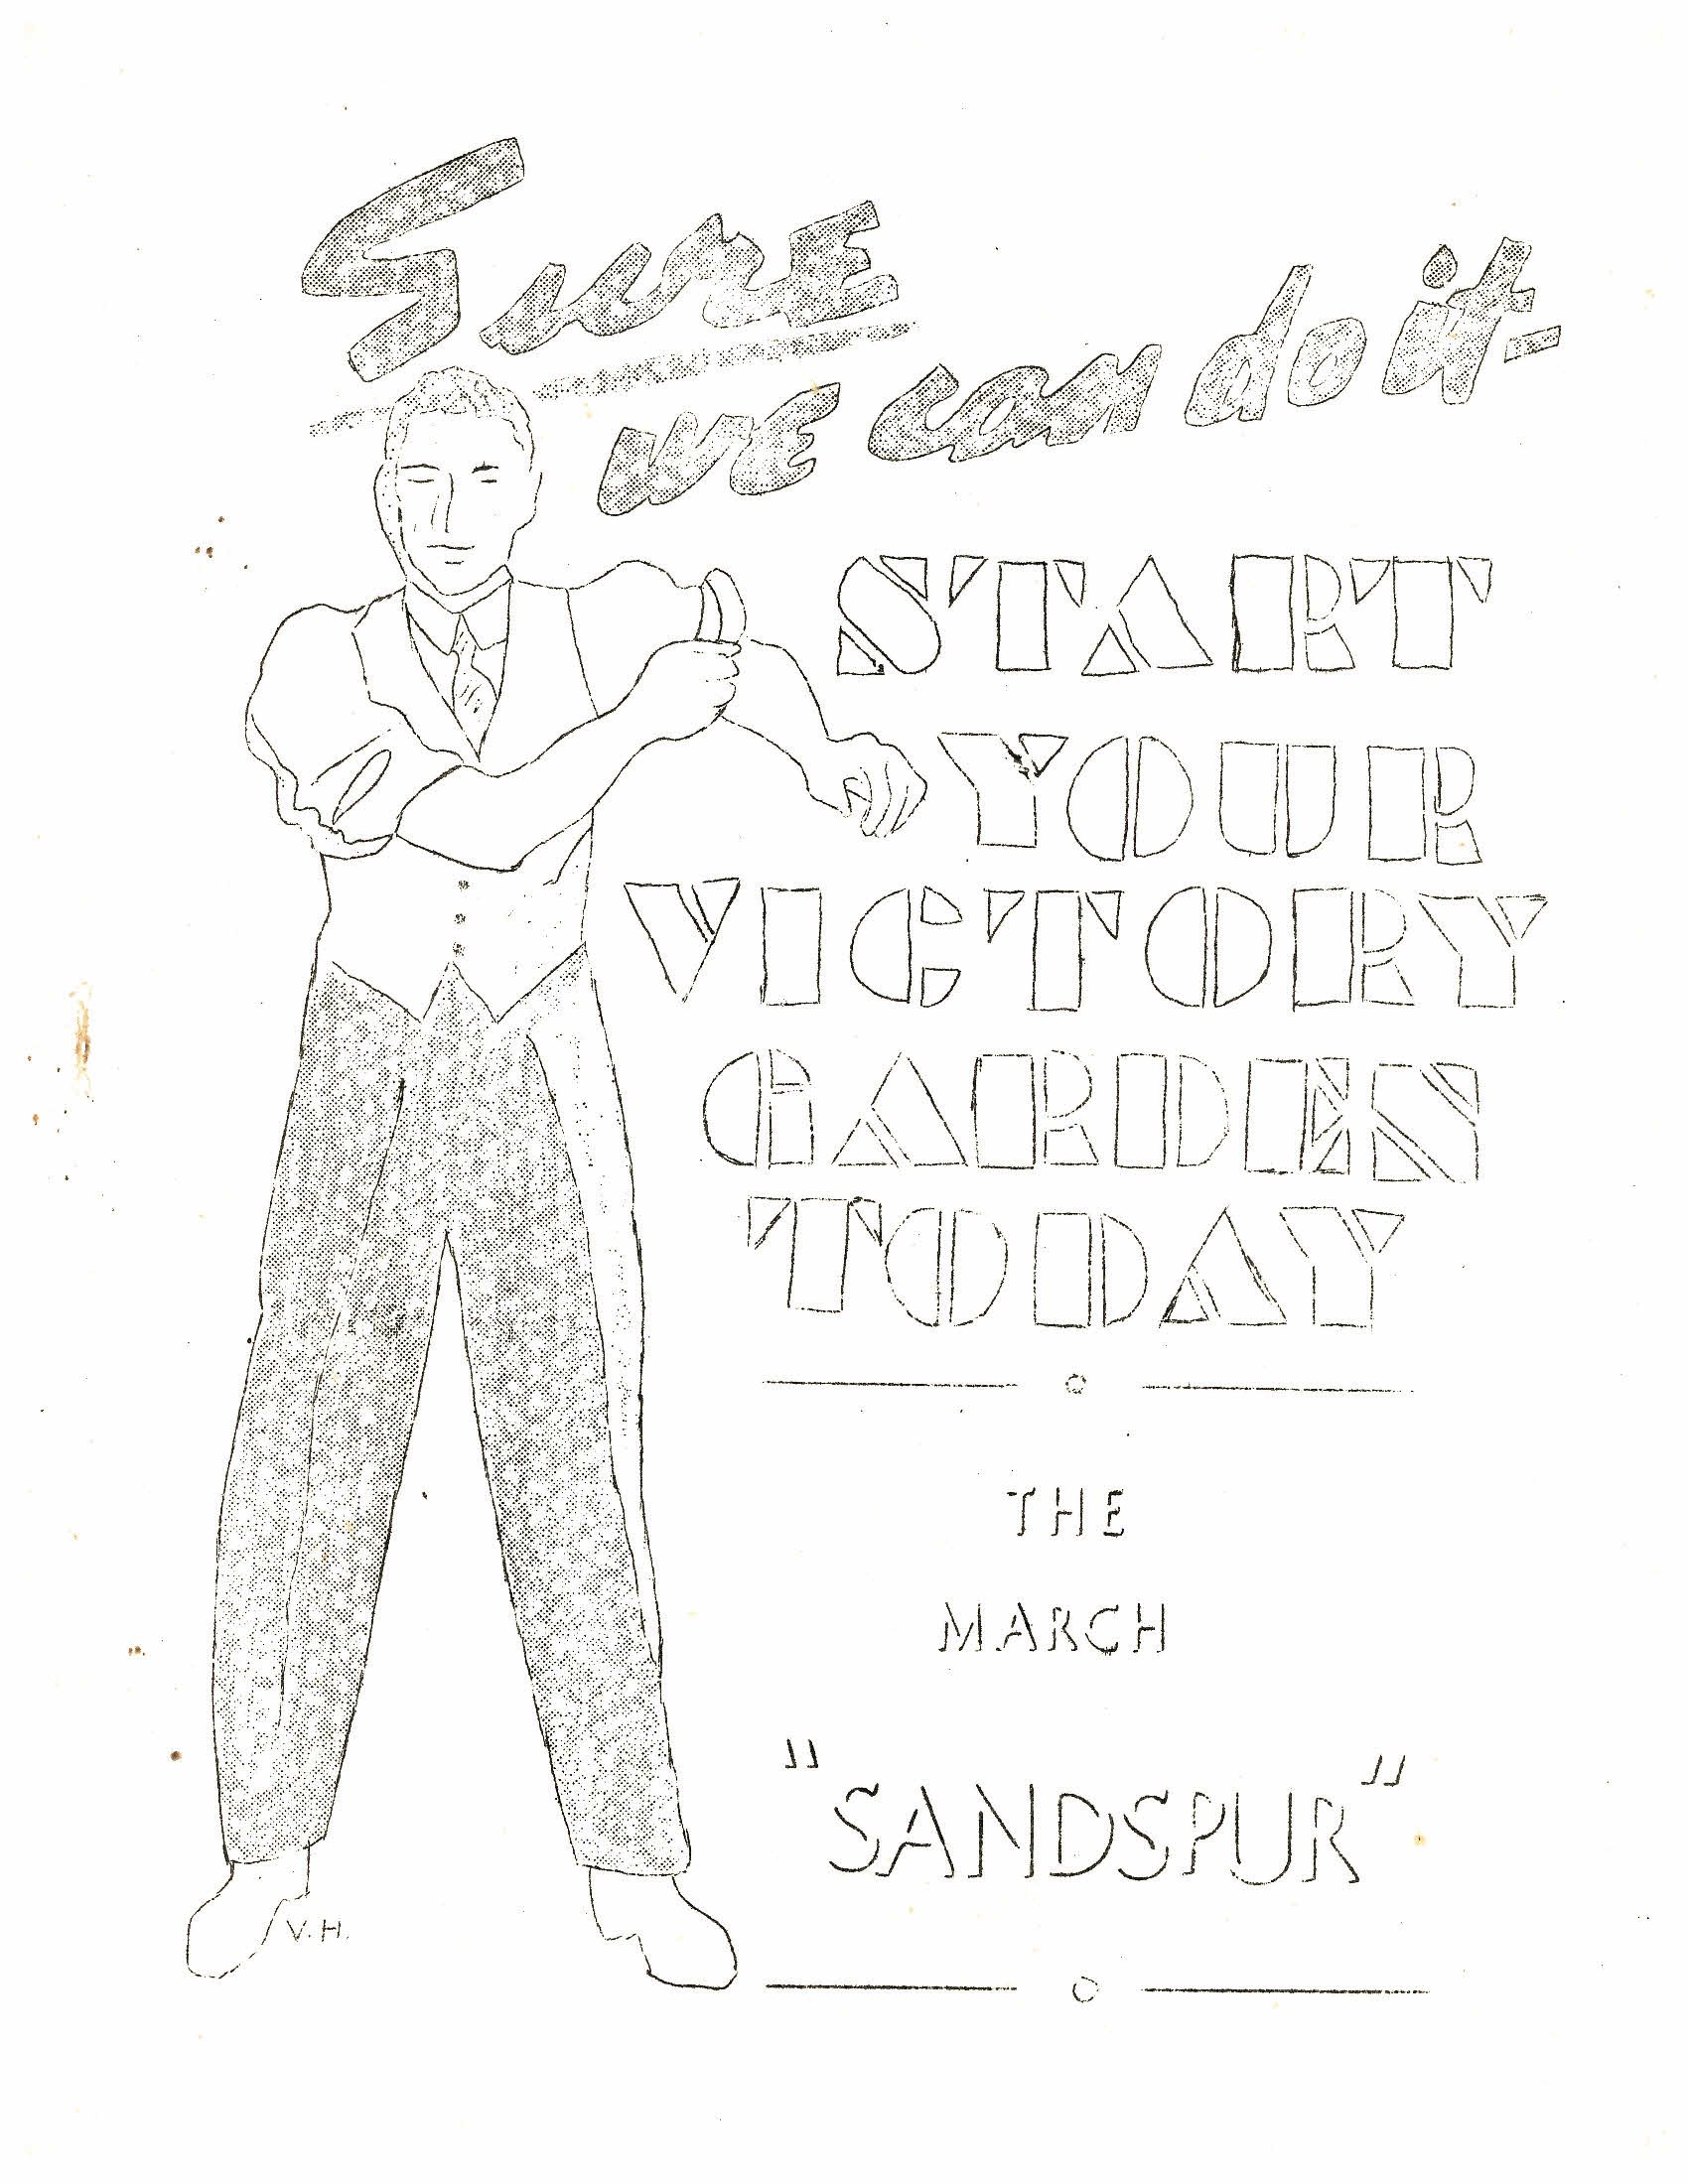 Sure
we can do it-
START
YOUR
VICTORY
GARDEN
TODAY
THE
MARCH
"SANDSPUR"
V.H.